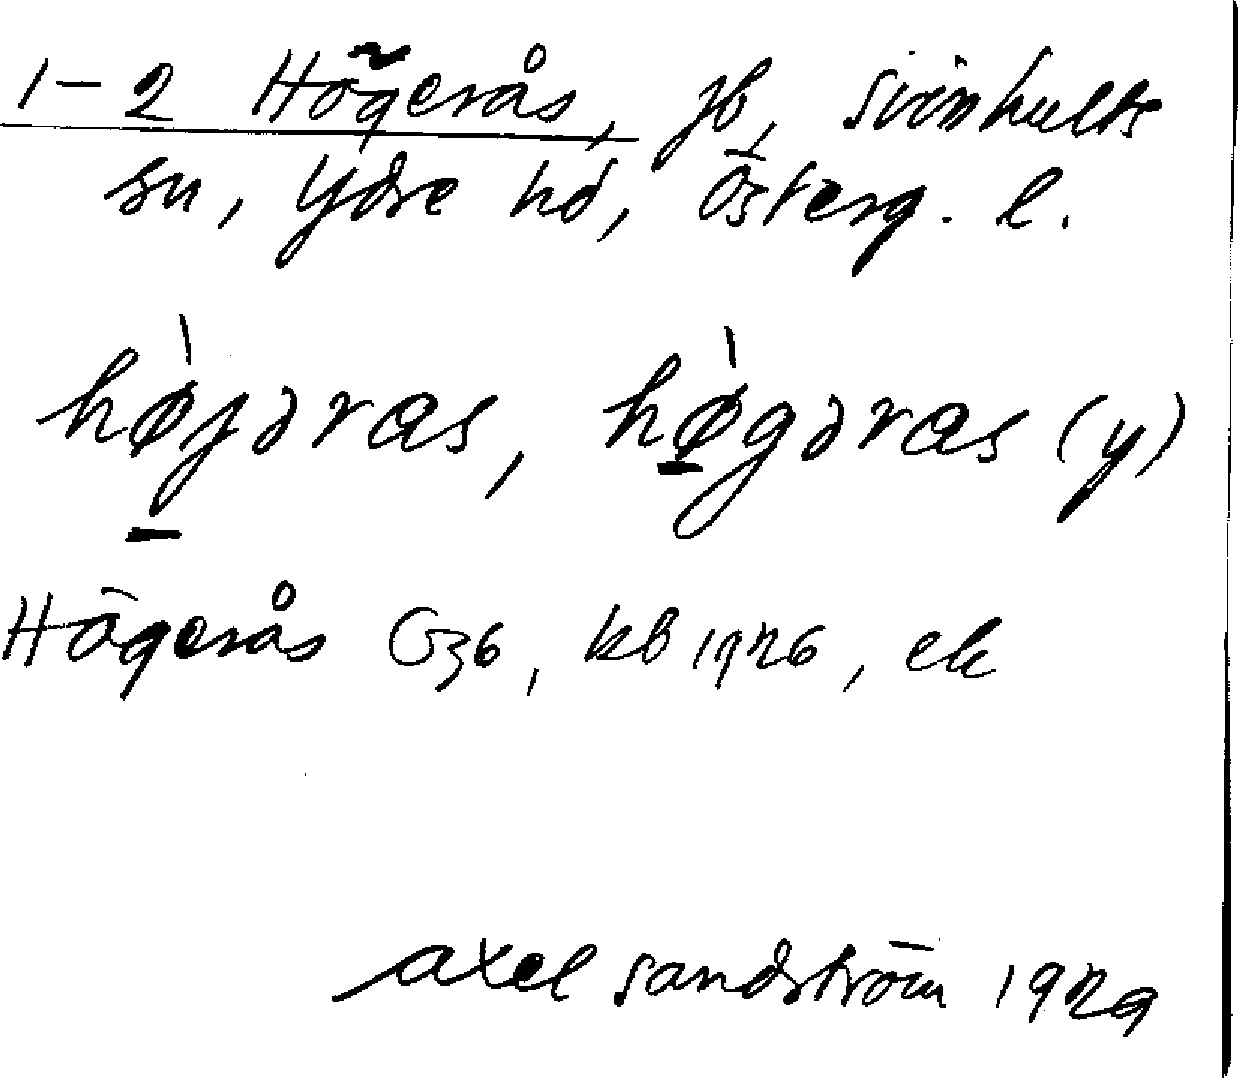 1-2 Högerås, jb, Svinhults
sn, Ydre hd, Österg. l.
hø̀jəras, hø̀gəras (y)
Högerås G36, kb 1926, ek
Axel Sandström 1929